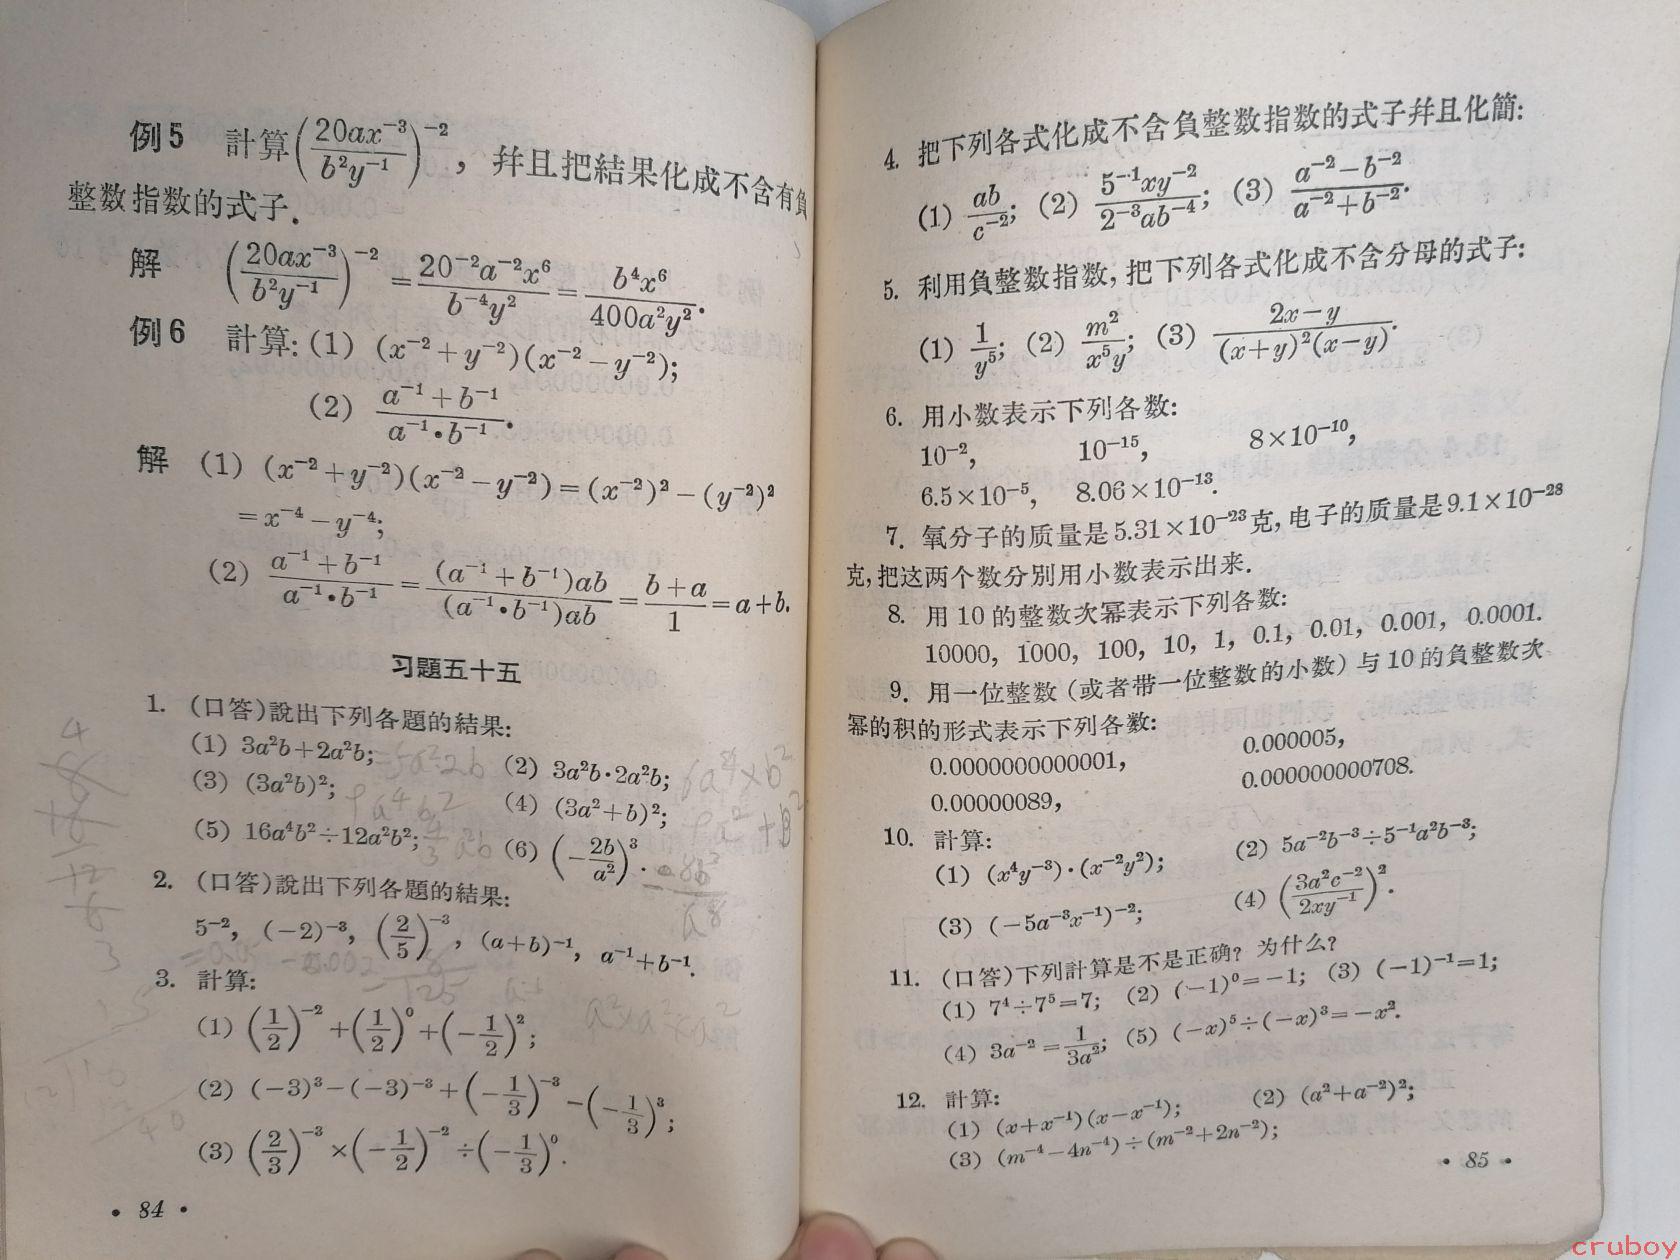 例5 計算(20ax⁻³/b²y⁻¹)⁻², 幷且把結果化成不含有負
整数指数的式子.
解 (20ax⁻³/b²y⁻¹)⁻² = 20⁻²a⁻²x⁶/b⁻⁴y² = b⁴x⁶/400a²y².
例6 計算: (1) (x⁻²+y⁻²)(x⁻²−y⁻²);
(2) a⁻¹+b⁻¹/a⁻¹•b⁻¹.
解 (1) (x⁻²+y⁻²)(x⁻²−y⁻²)=(x⁻²)²−(y⁻²)²
=x⁻⁴−y⁻⁴;
(2) a⁻¹+b⁻¹/a⁻¹•b⁻¹ = (a⁻¹+b⁻¹)ab/(a⁻¹•b⁻¹)ab = b+a/1 = a+b.
习題五十五
1. (口答)說出下列各題的結果:
(1) 3a²b+2a²b; (2) 3a²b•2a²b;
(3) (3a²b)²; (4) (3a²+b)²;
(5) 16a⁴b²÷12a²b²; (6) (−2b/a²)³.
2. (口答)說出下列各題的結果:
5⁻², (−2)⁻³, (2/5)⁻³, (a+b)⁻¹, a⁻¹+b⁻¹.
3. 計算:
(1) (1/2)⁻²+(1/2)⁰+(−1/2)²;
(2) (−3)³−(−3)⁻³+(−1/3)⁻³−(−1/3)³;
(3) (2/3)⁻³×(−1/2)⁻²÷(−1/3)⁰.
• 84 •
4. 把下列各式化成不含負整数指数的式子幷且化簡:
(1) ab/c⁻²; (2) 5⁻¹xy⁻²/2⁻³ab⁻⁴; (3) a⁻²−b⁻²/a⁻²+b⁻².
5. 利用負整数指数, 把下列各式化成不含分母的式子:
(1) 1/y⁵; (2) m²/x⁵y; (3) 2x−y/(x+y)²(x−y).
6. 用小数表示下列各数:
10⁻², 10⁻¹⁵, 8×10⁻¹⁰,
6.5×10⁻⁵, 8.06×10⁻¹³.
7. 氧分子的质量是5.31×10⁻²³克, 电子的质量是9.1×10⁻²⁸
克, 把这两个数分別用小数表示出来.
8. 用10的整数次幂表示下列各数:
10000, 1000, 100, 10, 1, 0.1, 0.01, 0.001, 0.0001.
9. 用一位整数(或者带一位整数的小数)与10的負整数次
幂的积的形式表示下列各数:
0.0000000000001, 0.000005,
0.00000089, 0.000000000708.
10. 計算:
(1) (x⁴y⁻³)•(x⁻²y²); (2) 5a⁻²b⁻³÷5⁻¹a²b⁻³;
(3) (−5a⁻³x⁻¹)⁻²; (4) (3a²c⁻²/2xy⁻¹)².
11. (口答)下列計算是不是正确? 为什么?
(1) 7⁴÷7⁵=7; (2) (−1)⁰=−1; (3) (−1)⁻¹=1;
(4) 3a⁻²=1/3a²; (5) (−x)⁵÷(−x)³=−x².
12. 計算:
(1) (x+x⁻¹)(x−x⁻¹); (2) (a²+a⁻²)²;
(3) (m⁻⁴−4n⁻⁴)÷(m⁻²+2n⁻²);
• 85 •
cruboy